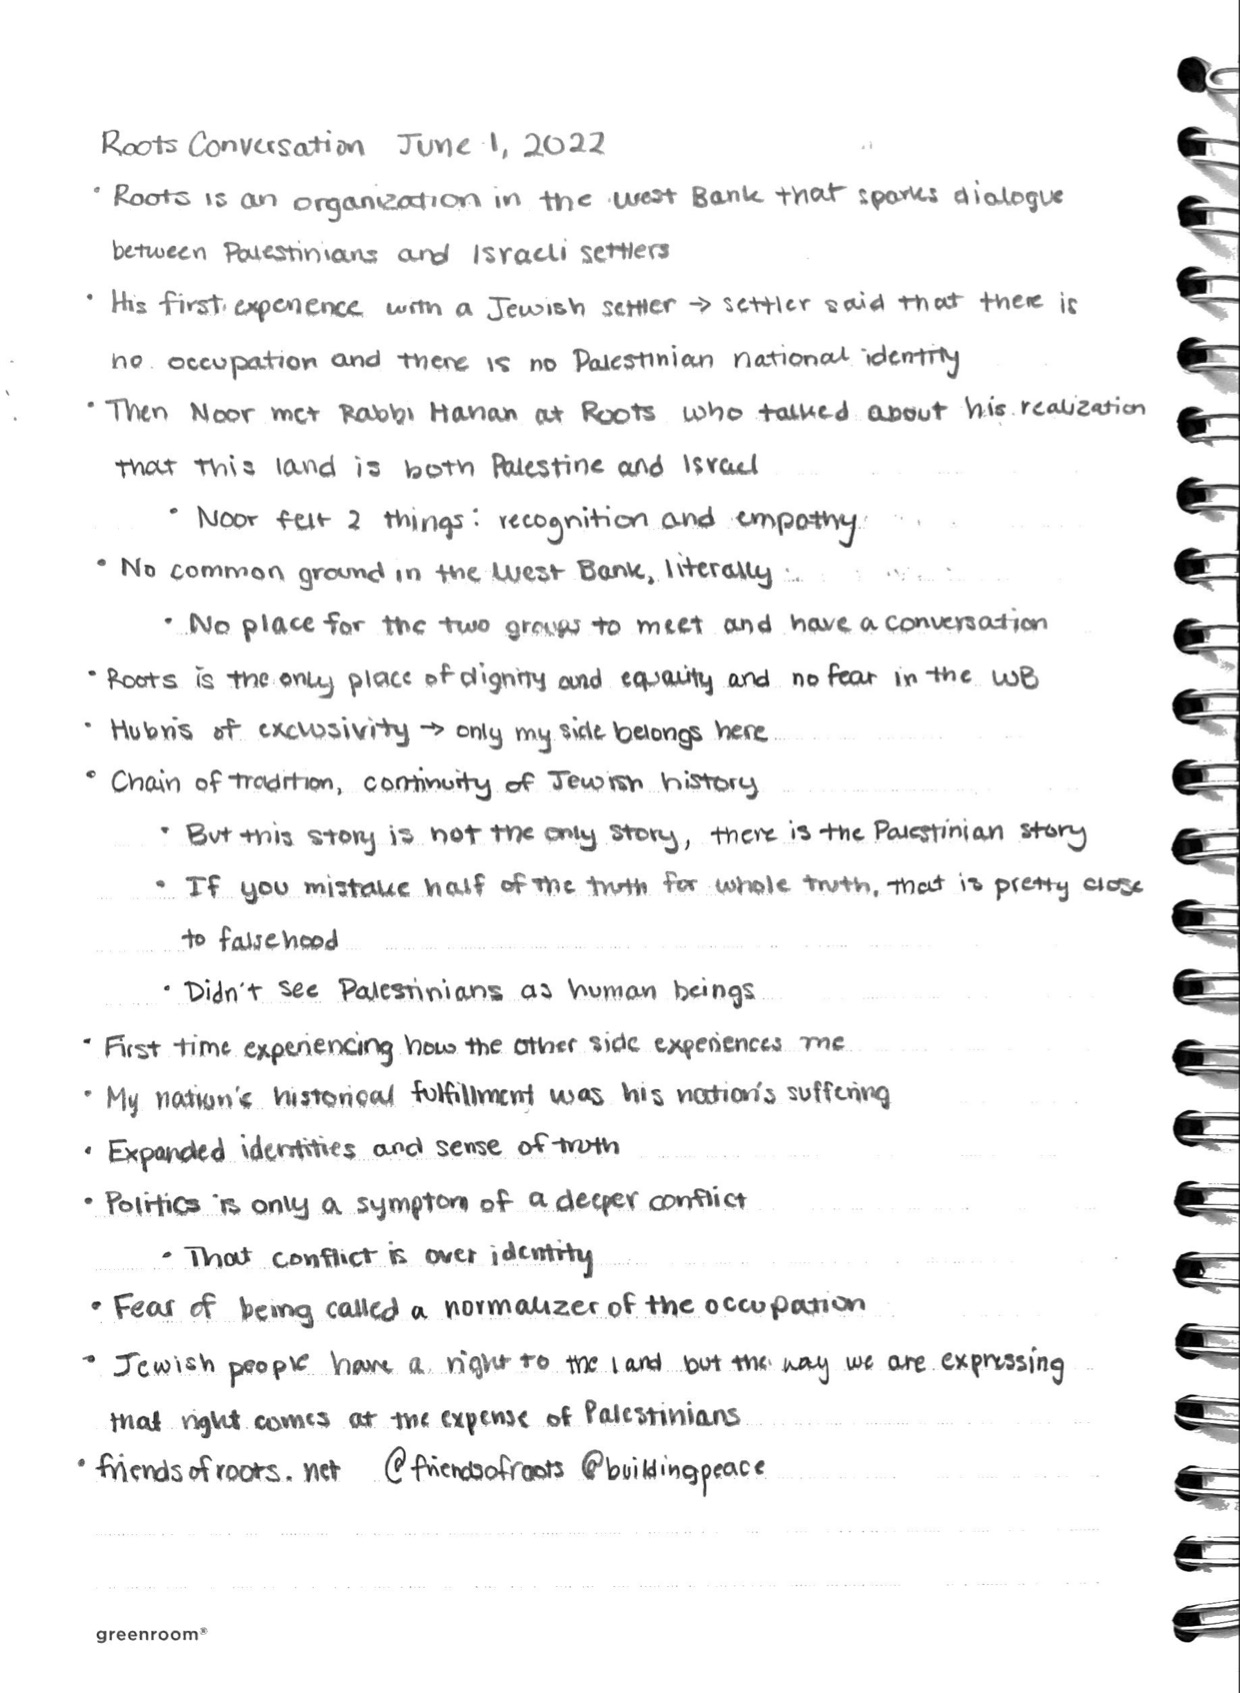 Roots Conversation June 1, 2022
• Roots is an organization in the West Bank that sparks dialogue
between Palestinians and Israeli settlers
• His first experience with a Jewish settler → settler said that there is
no occupation and there is no Palestinian national identity
• Then Noor met Rabbi Hanan at Roots who talked about his realization
that this land is both Palestine and Israel
• Noor felt 2 things: recognition and empathy
• No common ground in the West Bank, literally
• No place for the two groups to meet and have a conversation
• Roots is the only place of dignity and equality and no fear in the WB
• Hubris of exclusivity → only my side belongs here
• Chain of tradition, continuity of Jewish history
• But this story is not the only story, there is the Palestinian story
• If you mistake half of the truth for whole truth, that is pretty close
to falsehood
• Didn't see Palestinians as human beings
• First time experiencing how the other side experiences me
• My nation's historical fulfillment was his nation's suffering
• Expanded identities and sense of truth
• Politics is only a symptom of a deeper conflict
• That conflict is over identity
• Fear of being called a normalizer of the occupation
• Jewish people have a right to the land but the way we are expressing
that right comes at the expense of Palestinians
• friendsofroots.net @friendsofroots @buildingpeace
greenroom®